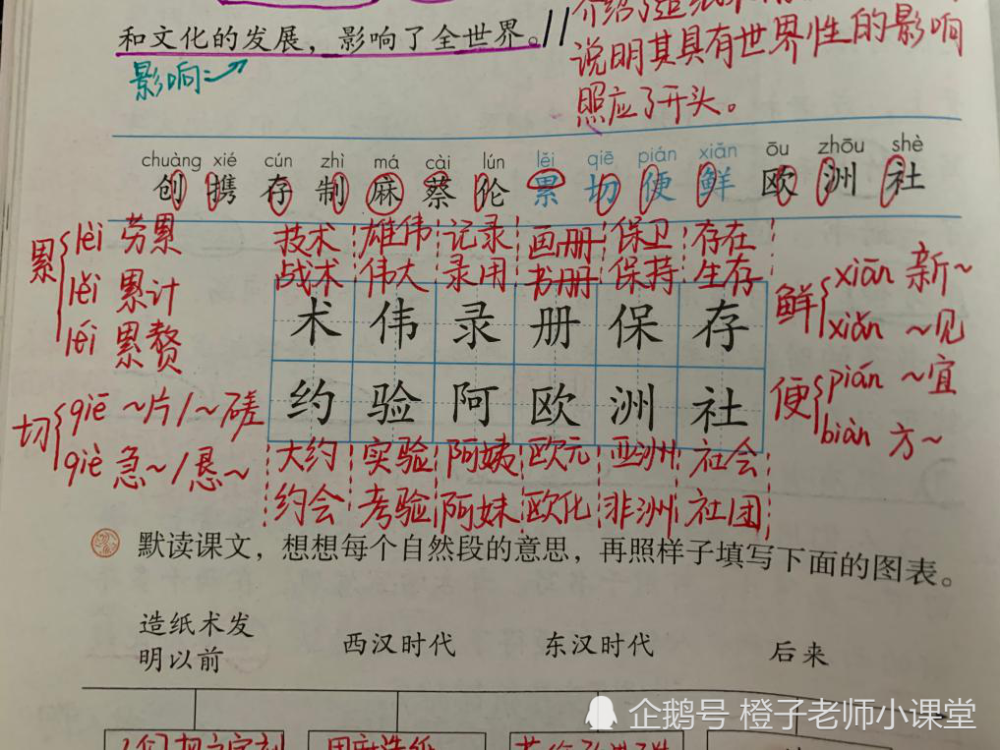 和文化的发展，影响了全世界。
影响
说明其具有世界性的影响
照应了开头。
chuàng xié cún zhì má cài lún lěi qiē pián xiān ōu zhōu shè
创 携 存 制 麻 蔡 伦 累 切 便 鲜 欧 洲 社
累 lèi 劳累
lěi 累计
léi 累赘
切 qiē ~片/~磋
qiè 急~/恳~
技术 雄伟 记录 画册 保卫 存在
战术 伟大 录用 书册 保持 生存
术 伟 录 册 保 存
约 验 阿 欧 洲 社
大约 实验 阿姨 欧元 亚洲 社会
约会 考验 阿妹 欧化 非洲 社团
鲜 xiān 新~
xiǎn ~见
便 pián ~宜
biàn 方~
默读课文，想想每个自然段的意思，再照样子填写下面的图表。
造纸术发
明以前
西汉时代
东汉时代
后来
企鹅号 橙子老师小课堂